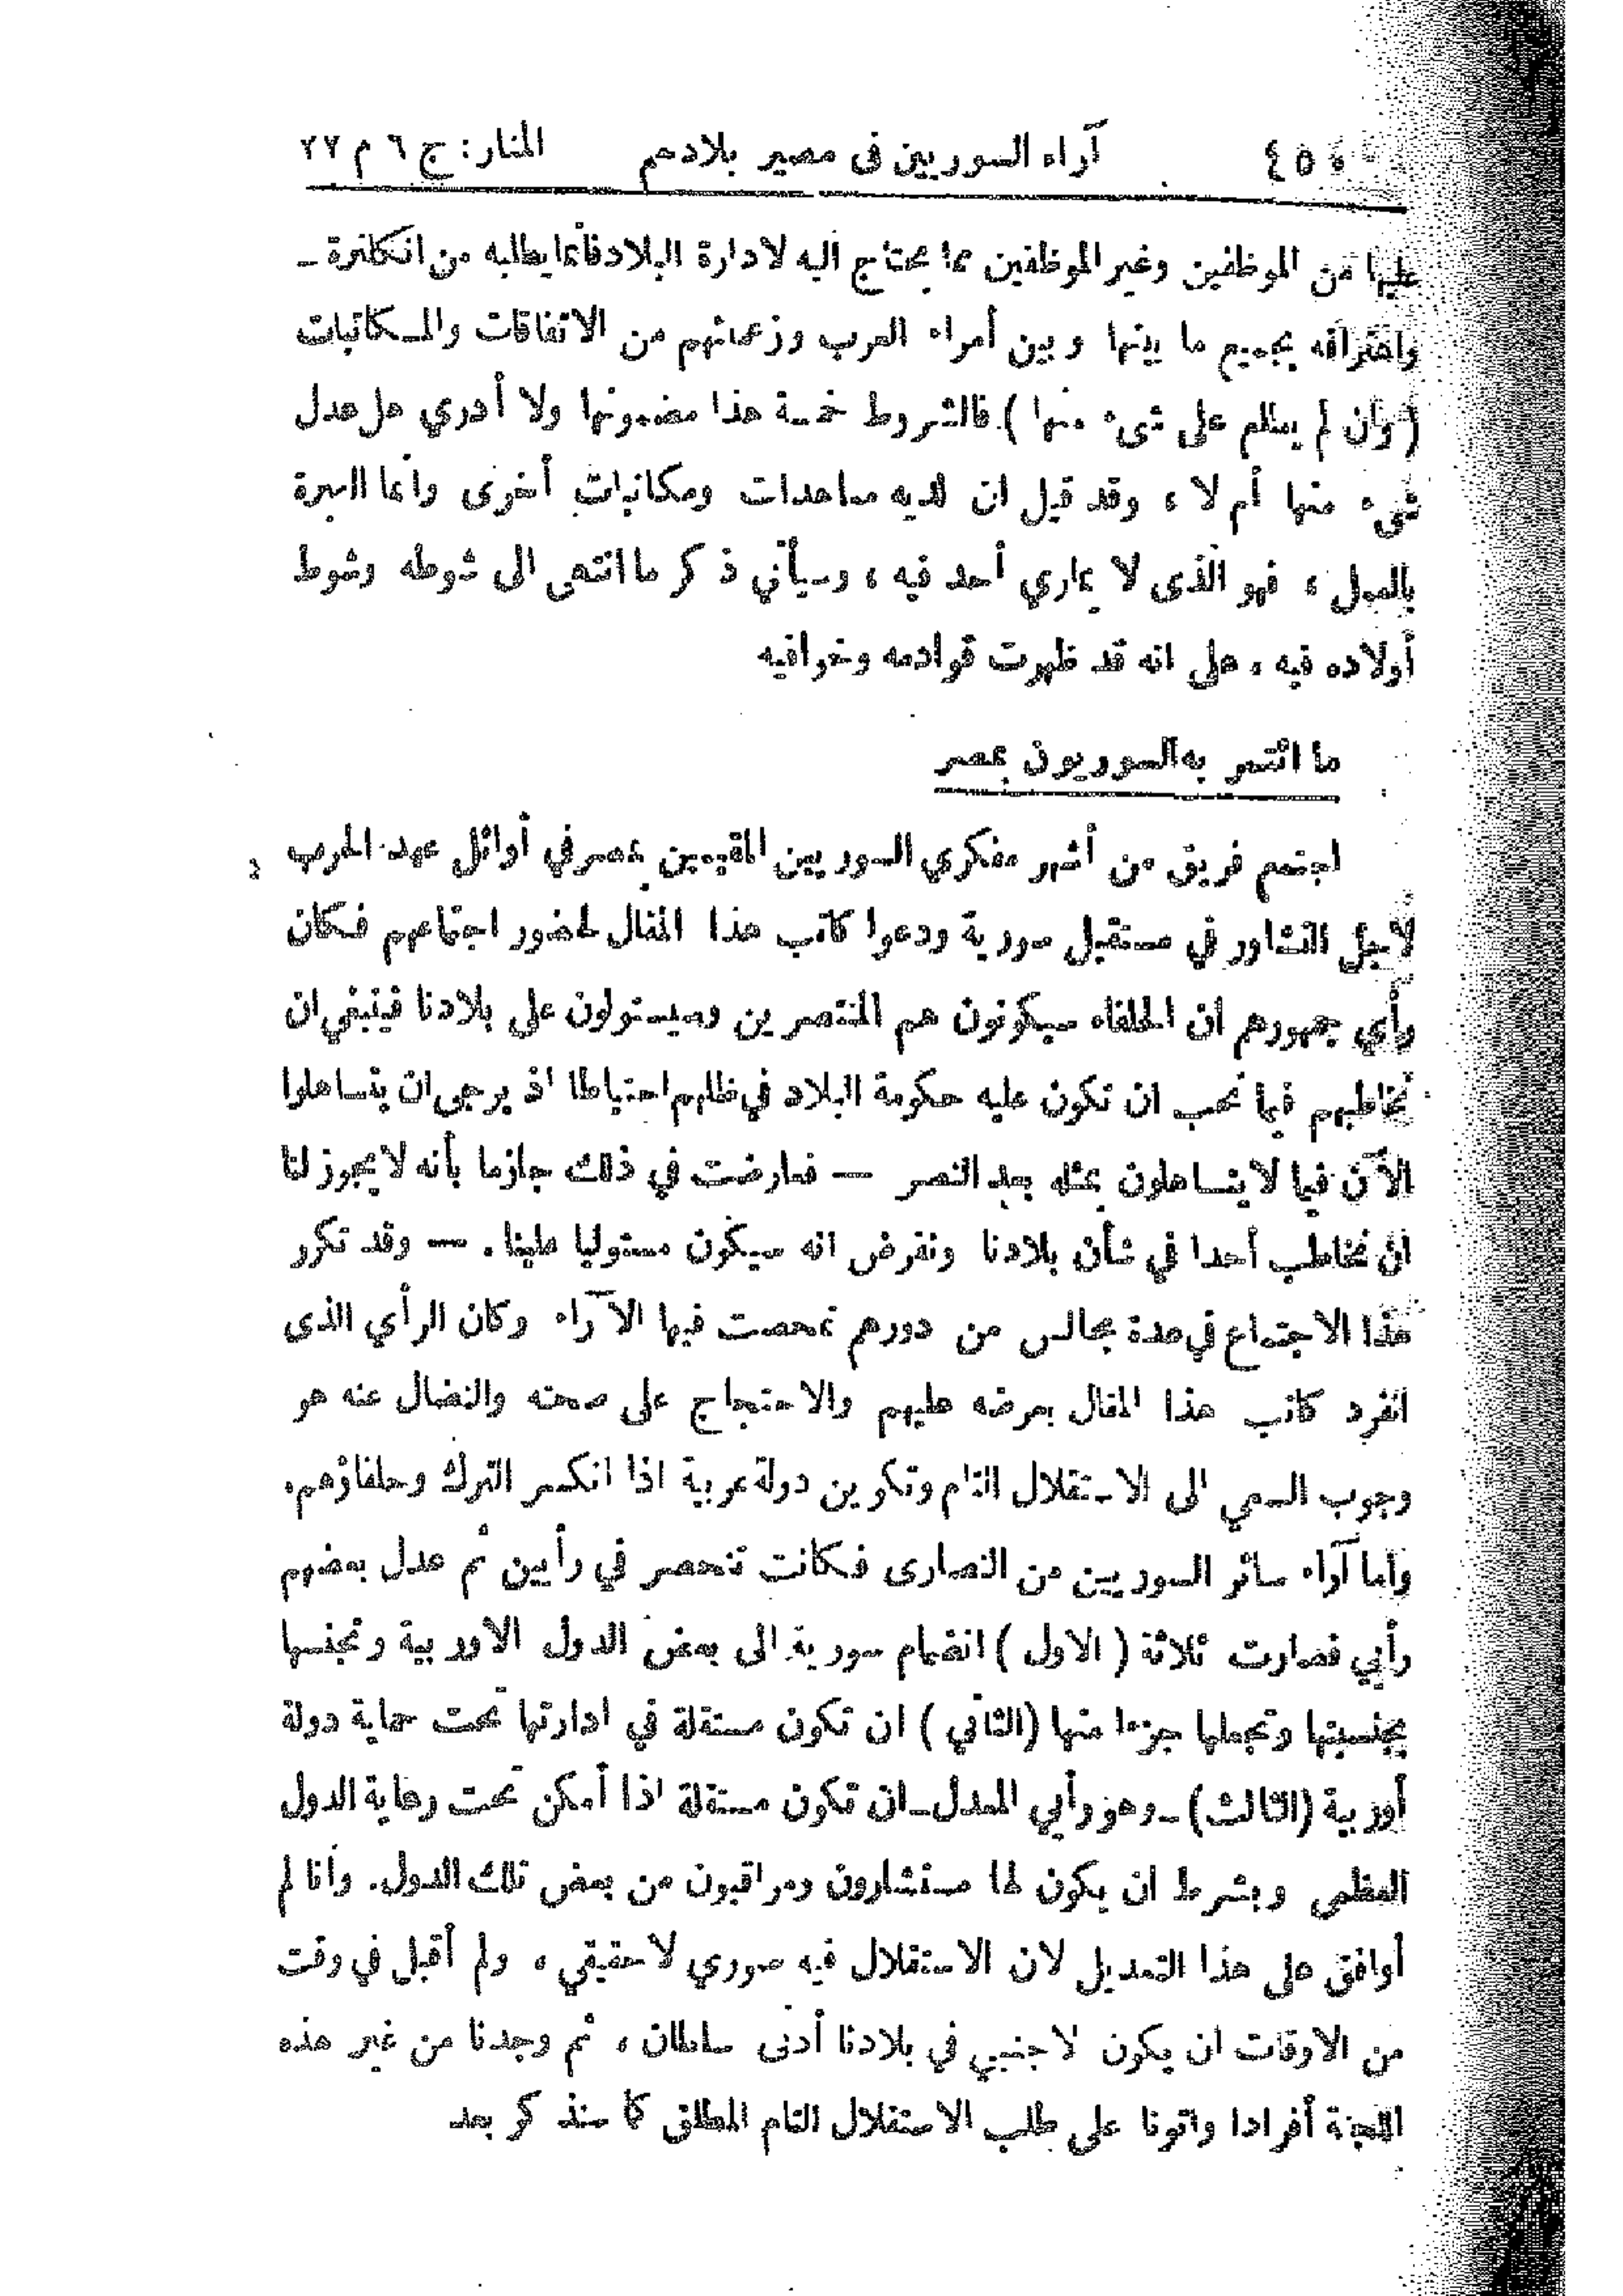 ٤٥٠ آراء السوريين فى مصير بلادهم المنار: ج ٦ م ٢٧
عليها من الموظفين وغير الموظفين مما يحتاج اليه لادارة البلاد فانما يطلبه من انكلترة ـ
واعترافه بجميع ما بينها وبين أمراء العرب وزعمائهم من الاتفاقات والمكاتبات
(وان لم يطلع على شىء منها). فالشروط خمسة هذا مضمونها ولا أدري هل عدل
شىء منها أم لا، وقد قيل ان لديه معاهدات ومكاتبات أخرى وانما العبرة
بالعمل، فهو الذى لا يماري أحد فيه، وسيأتي ذكر ما انتهى الى شوطه وشوط
أولاده فيه، على انه قد ظهرت قوادمه وخوافيه
ما ائتمر به السوريون بمصر
اجتمع فريق من أشهر مفكري السوريين المقيمين بمصر في أوائل عهد الحرب
لأجل التشاور في مستقبل سورية ودعوا كاتب هذا المقال لحضور اجتماعهم فكان
رأي جمهورهم ان الحلفاء سيكونون هم المنتصرين وسيستولون على بلادنا فينبغي ان
نخاطبهم فيما نحب ان تكون عليه حكومة البلاد في ظلهم احتياطا اذ يرجى ان يتساهلوا
الآن فيما لا يتساهلون بمثله بعد النصر — فعارضت في ذلك جازما بأنه لا يجوز لنا
ان نخاطب أحدا في شأن بلادنا ونفرض انه سيكون مستوليا علينا. — وقد تكرر
هذا الاجتماع في عدة مجالس من دورهم تمحصت فيها الآراء وكان الرأي الذى
انفرد كاتب هذا المقال بعرضه عليهم والاحتجاج على صحته والنضال عنه هو
وجوب السعي الى الاستقلال التام وتكوين دولة عربية اذا انكسر الترك وحلفاؤهم.
وأما آراء سائر السوريين من النصارى فكانت تنحصر في رأيين ثم عدل بعضهم
رأيي فصارت ثلاثة (الاول) انضمام سورية الى بعض الدول الاوربية وتجنسها
بجنسيتها وتجعلها جزءا منها (الثاني) ان تكون مستقلة في ادارتها تحت حماية دولة
أوربية (الثالث) ـ وهو رأيي المعدل ـ ان تكون مستقلة اذا أمكن تحت رعاية الدول
العظمى وبشرط ان يكون لها مستشارون ومراقبون من بعض تلك الدول. وأنا لم
أوافق على هذا التعديل لان الاستقلال فيه صوري لا حقيقي، ولم أقبل في وقت
من الاوقات ان يكون لاجنبي في بلادنا أدنى سلطان، ثم وجدنا من غير هذه
اللجنة أفرادا واتونا على طلب الاستقلال التام المطلق كما سنذكر بعد